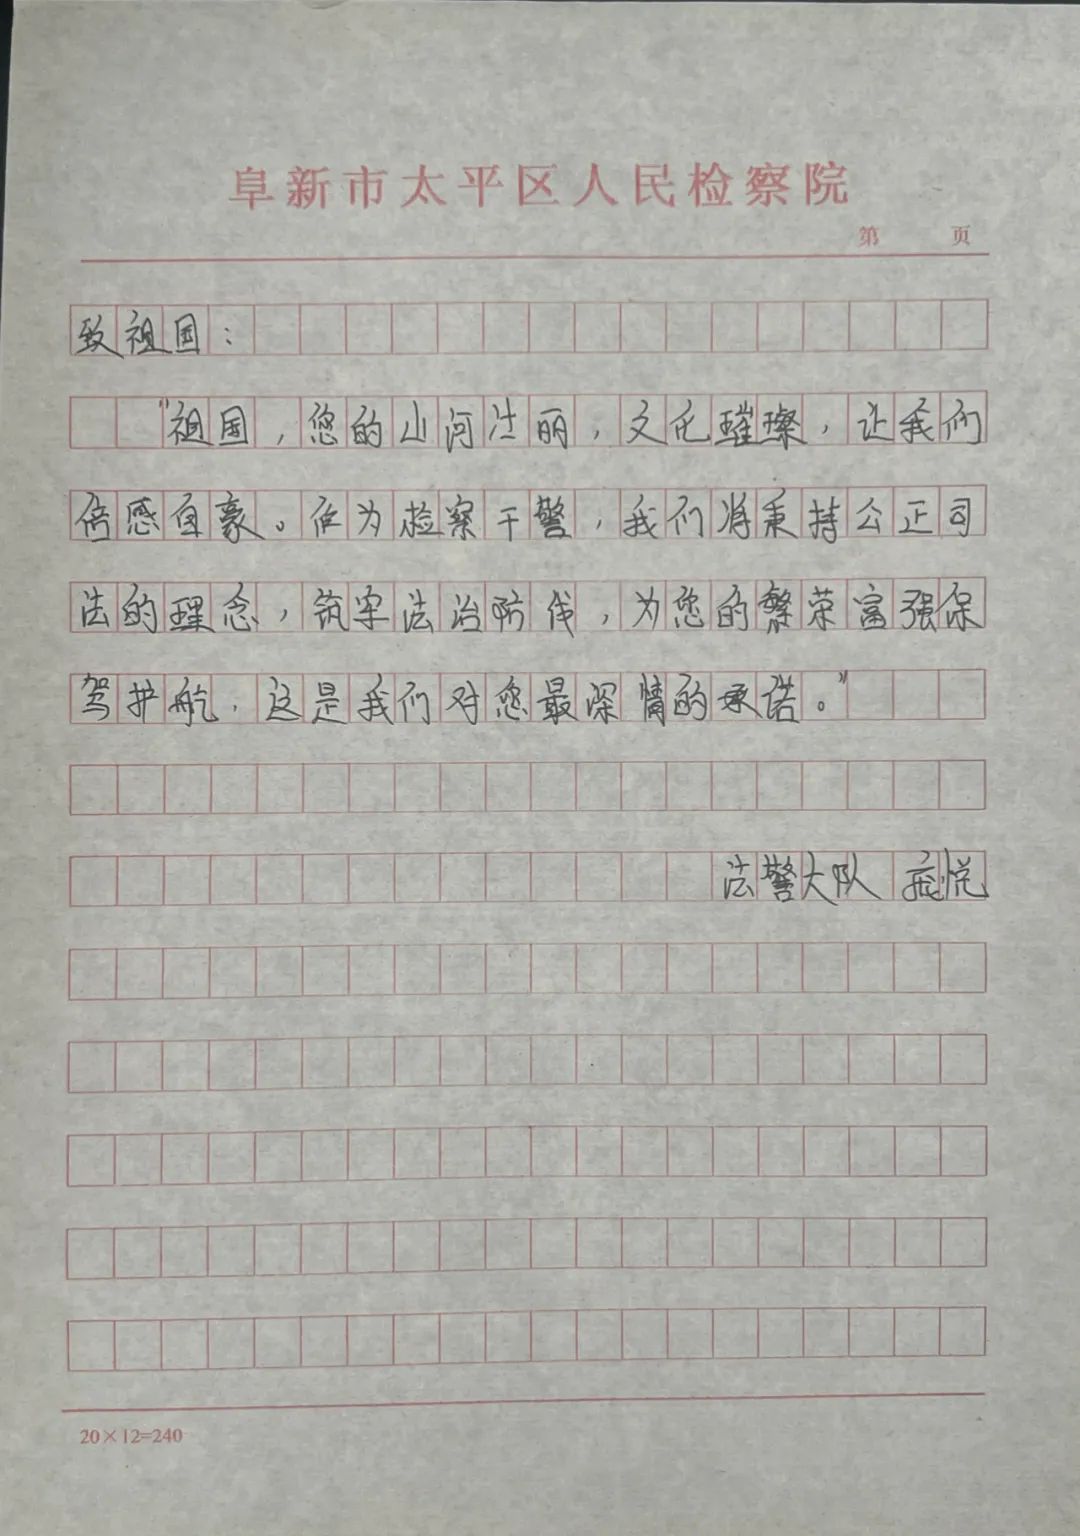 阜新市太平区人民检察院
第 页
致祖国：
"祖国，您的山河壮丽，文化璀璨，让我们
倍感自豪。作为检察干警，我们将秉持公正司
法的理念，筑牢法治防线，为您的繁荣富强保
驾护航，这是我们对您最深情的承诺。"
法警大队 悦
20×12=240